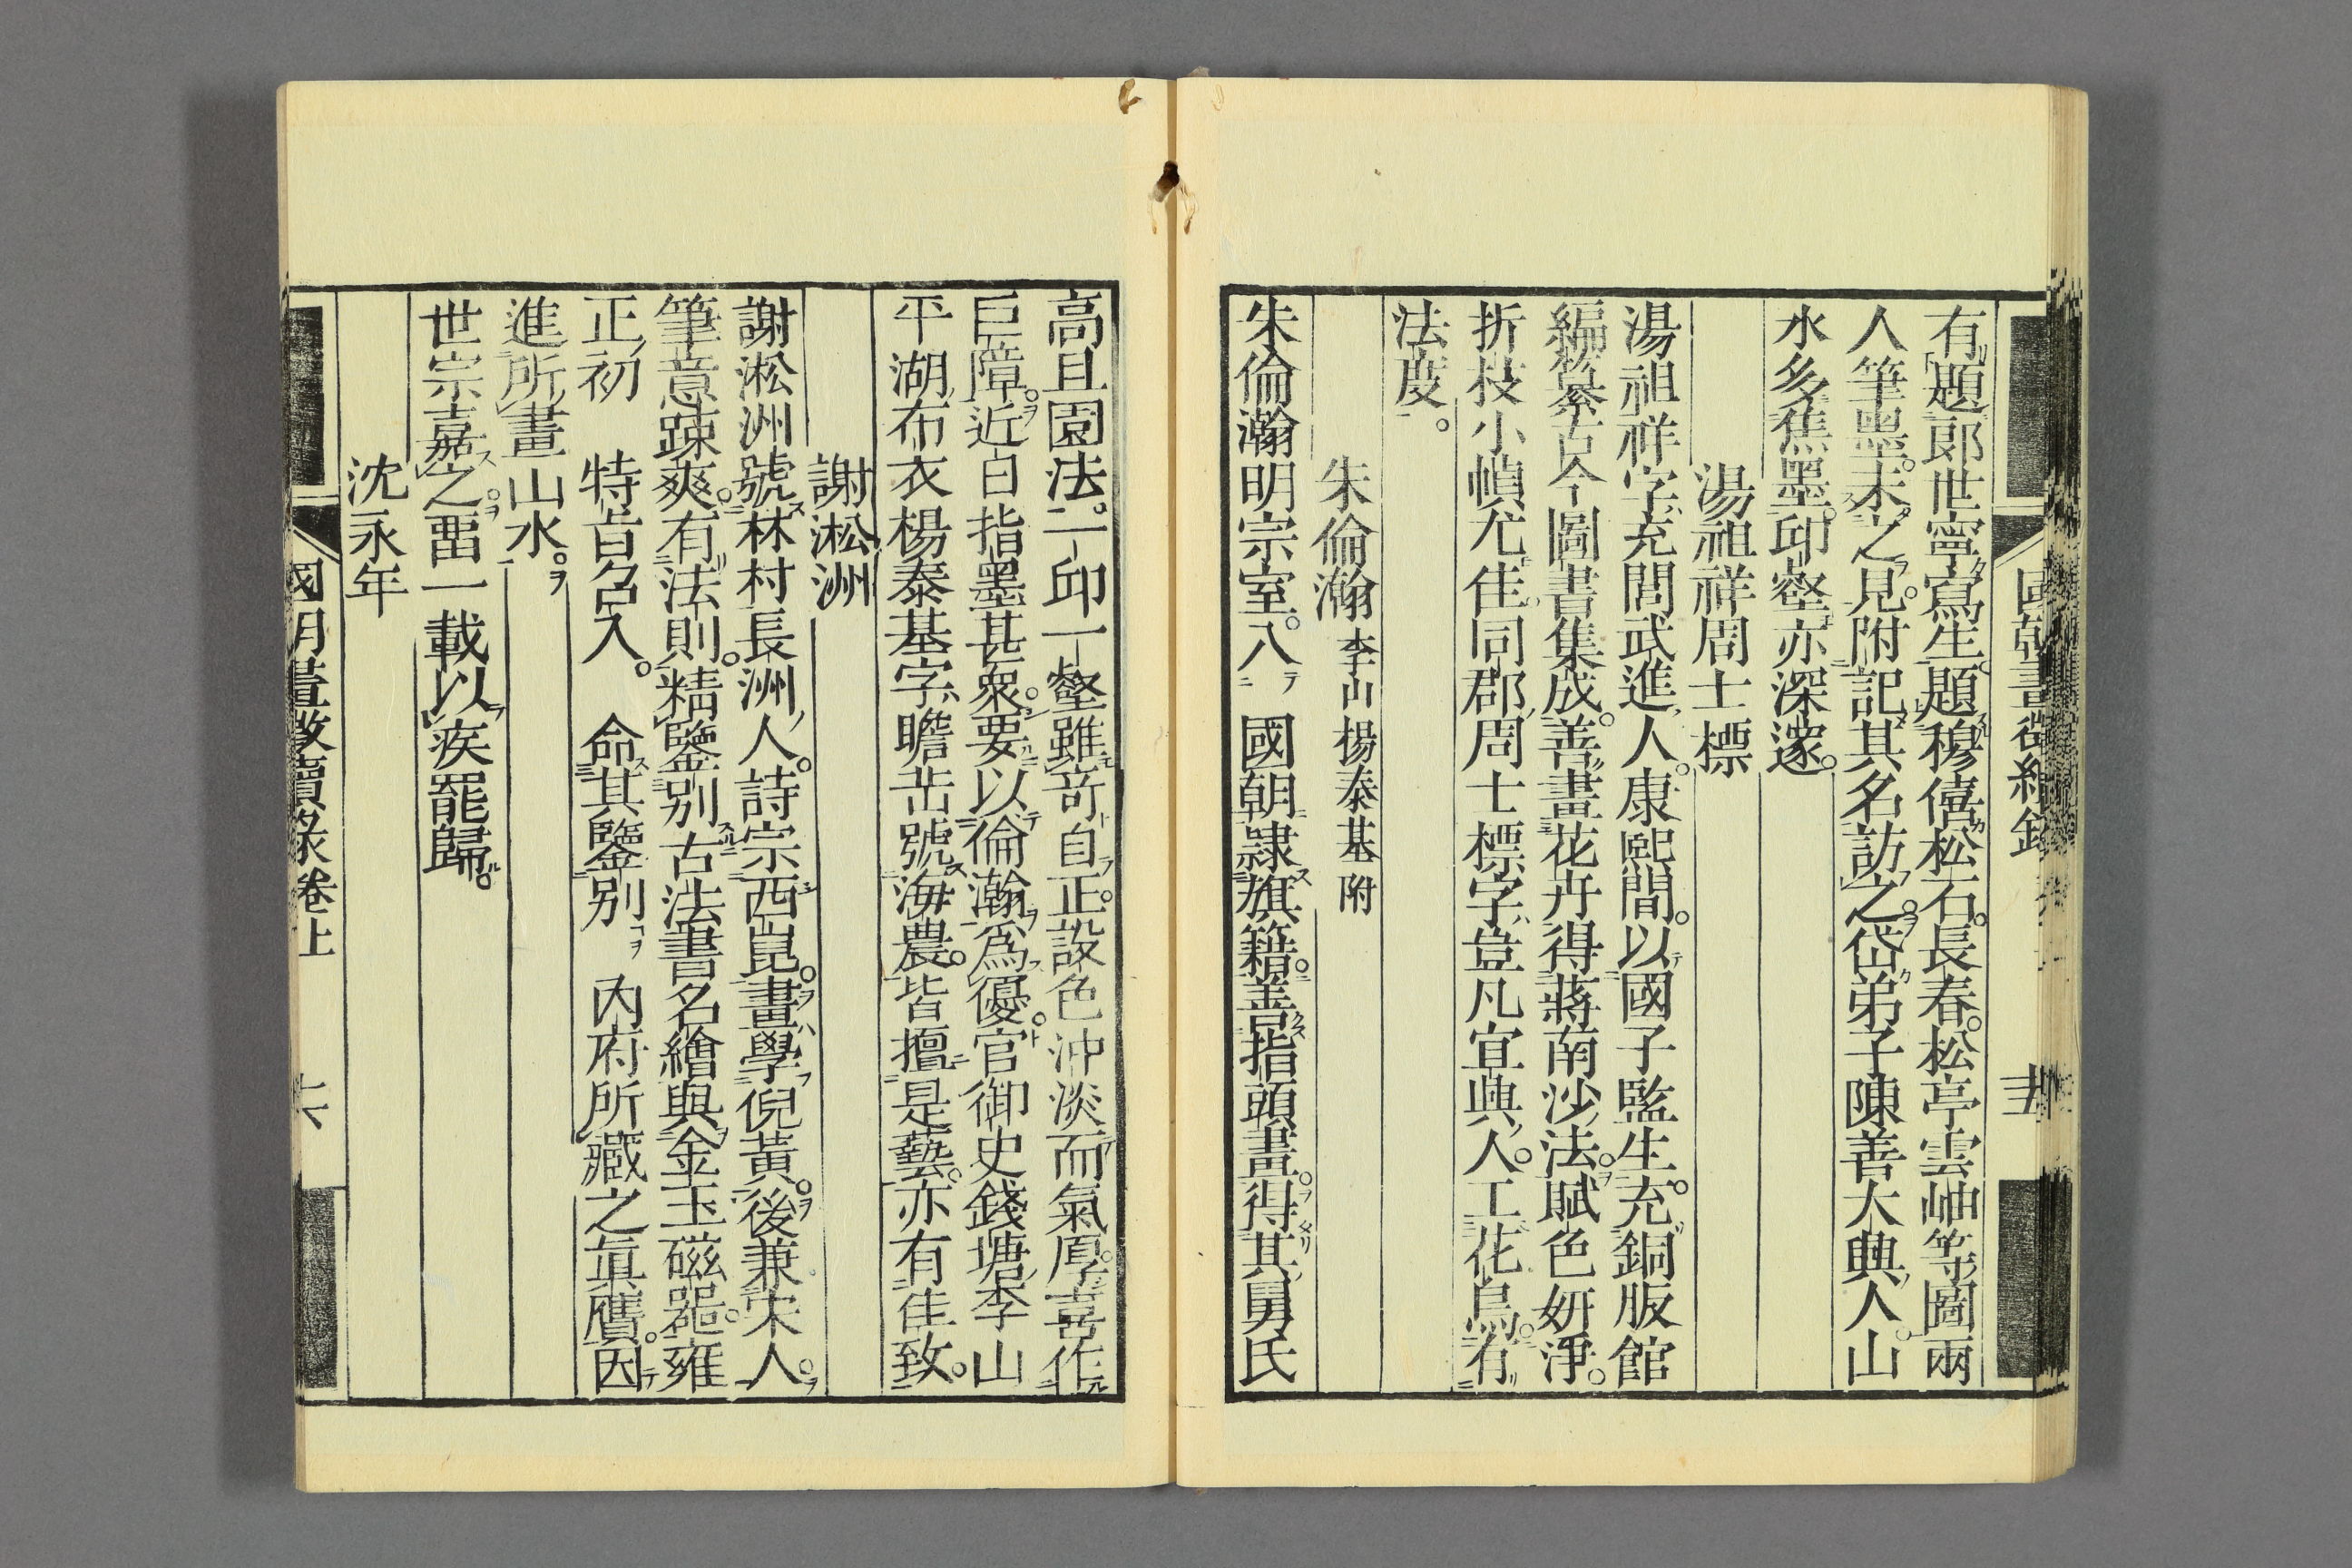 有題郎世寧寫生題穆僖松石長春松亭雲岫等圖兩
人筆墨。未之見。附記其名訪之。岱弟子陳善大興人。山
水多焦墨。邱壑亦深邃。
湯祖祥周士標
湯祖祥字充閭武進人。康熙間。以國子監生。充銅版館
編校纂古今圖書集成。善畫花卉得蔣南沙法。賦色妍淨。
折枝小幀尤佳同郡周士標字豈凡宜興人。工花鳥。有
法度。
朱倫瀚 李山 楊泰基 附
朱倫瀚明宗室。八 國朝隷旗籍。善指頭畫。得其舅氏
高且園法。一邱一壑雖竒自正。設色沖淡而氣厚。喜作
巨障。近日指墨甚衆。要以倫瀚爲優。官御史錢塘李山
平湖布衣楊泰基字瞻岳號海農。皆擅是藝。亦有佳致。
謝淞洲
謝淞洲號林村長洲人。詩宗西崑。畫學倪黃。後兼宋人。
筆意疎爽。有法則。精鑒别古法書名繪與金玉磁器。雍
正初 特旨召入。 命其鑒别 内府所藏之眞贋。因
進所畫山水。
世宗嘉之。畱一載以疾罷歸。
沈永年
卷上